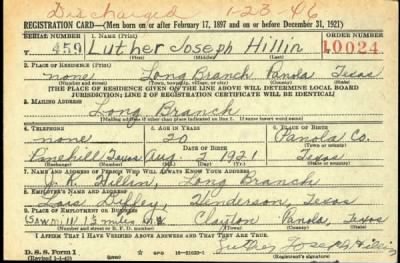 Discharged 1-23-46
REGISTRATION CARD—(Men born on or after February 17, 1897 and on or before December 31, 1921)
SERIAL NUMBER 1. NAME (Print) ORDER NUMBER
459 Luther Joseph Hillin 10024
(First) (Middle) (Last)
2. PLACE OF RESIDENCE (Print)
none Long Branch Panola Texas
(Number and street) (Town, township, village, or city) (County) (State)
[THE PLACE OF RESIDENCE GIVEN ON THE LINE ABOVE WILL DETERMINE LOCAL BOARD
JURISDICTION; LINE 2 OF REGISTRATION CERTIFICATE WILL BE IDENTICAL]
3. MAILING ADDRESS
Long Branch
[Mailing address if other than place indicated on line 2. If same insert word same]
4. TELEPHONE 5. AGE IN YEARS 6. PLACE OF BIRTH
none 20 Panola Co.
DATE OF BIRTH
Pinehill Texas Aug. 2 1921 Texas
7. NAME AND ADDRESS OF PERSON WHO WILL ALWAYS KNOW YOUR ADDRESS
Hillin, Long Branch
8. EMPLOYER'S NAME AND ADDRESS
Henderson, Texas
9. PLACE OF EMPLOYMENT OR BUSINESS
Sawmill 13 miles Clayton Panola, Texas
(Number and street or R. F. D. number) (Town) (County) (State)
I AFFIRM THAT I HAVE VERIFIED ABOVE ANSWERS AND THAT THEY ARE TRUE.
Luther Joseph Hillin
D. S. S. Form 1
(Revised 1-1-42) (over) (Registrant's signature)